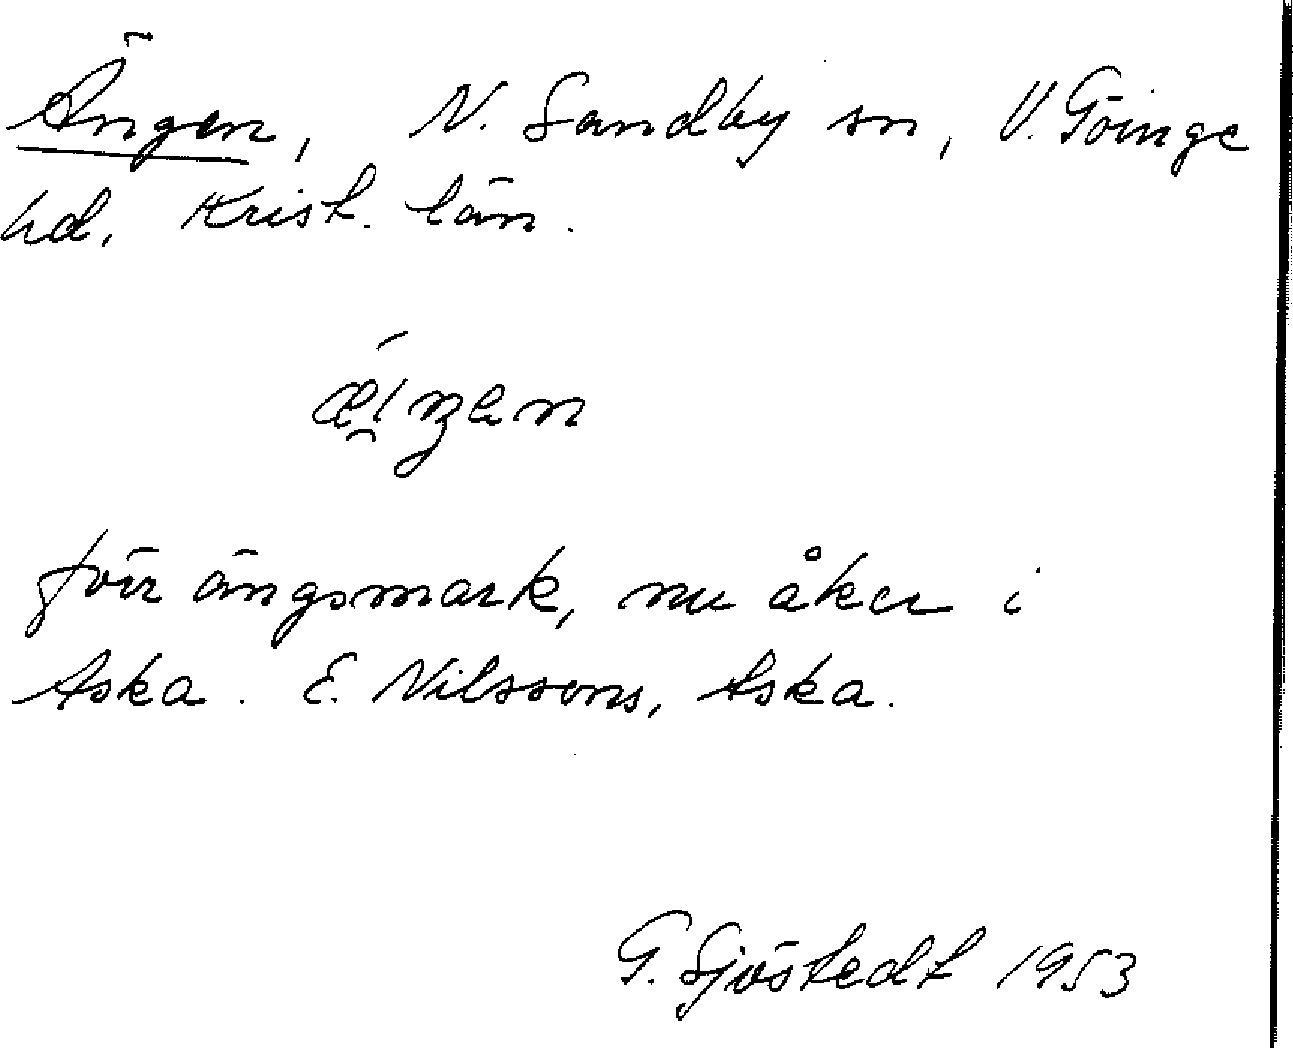 Ängen, N. Sandby sn, V. Göinge
hd. Krist. län.
förr ängsmark, nu åker i
Aska. E. Nilssons, Aska.
G. Sjöstedt 1953